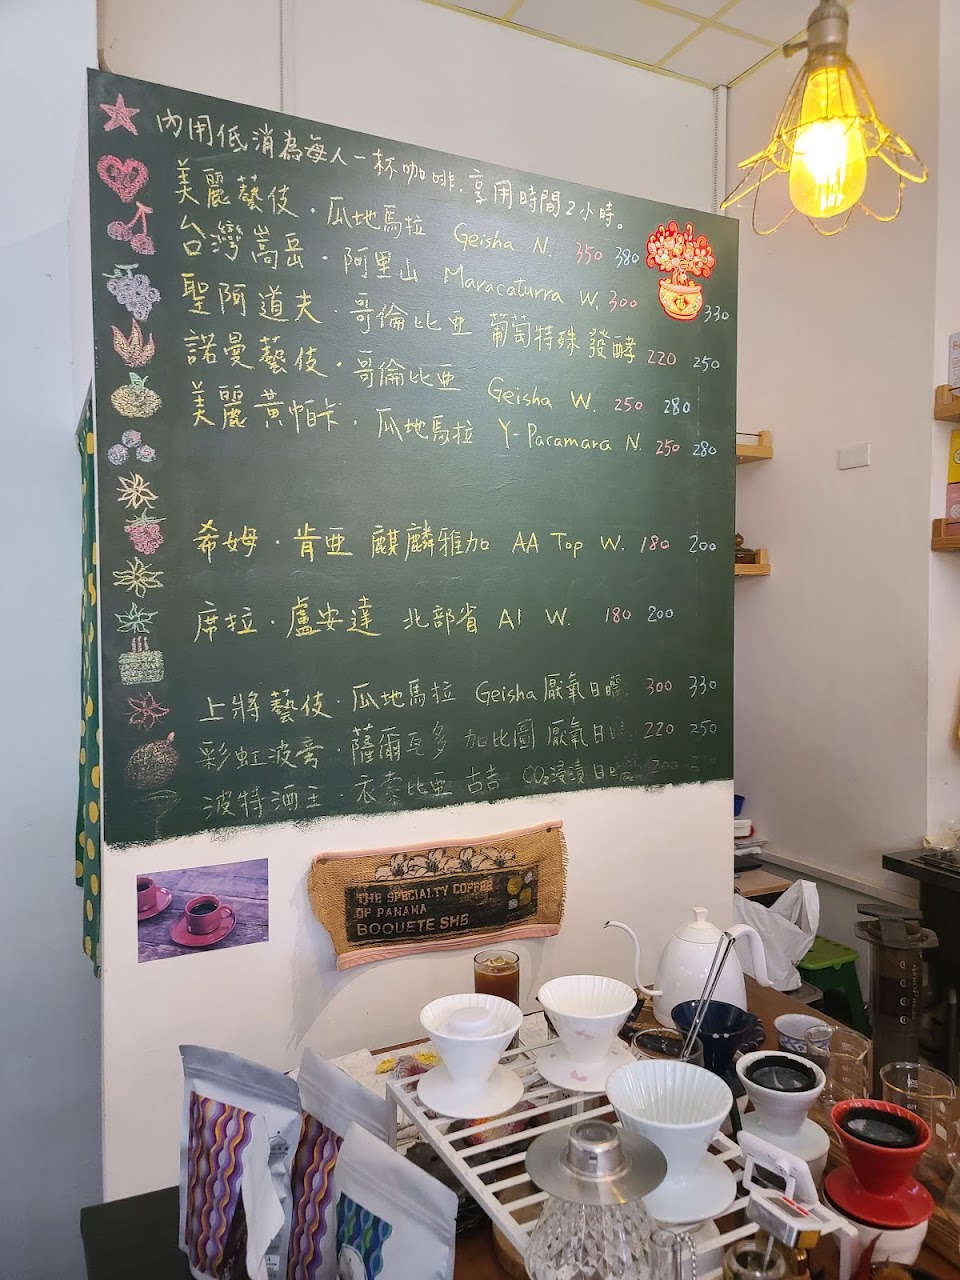 內用低消為每人一杯咖啡，享用時間2小時。
美麗藝伎・瓜地馬拉 Geisha N. 350 380
台灣嵩岳・阿里山 Maracaturra W. 300 330
聖阿道夫・哥倫比亞 葡萄特殊發酵 220 250
諾曼藝伎・哥倫比亞 Geisha W. 250 280
美麗黃帕卡・瓜地馬拉 Y-Pacamara N. 250 280
希姆・肯亞 麒麟雅加 AA Top W. 180 200
席拉・盧安達 北部省 A1 W. 180 200
上將藝伎・瓜地馬拉 Geisha 厭氧日曬 300 330
彩虹波旁・薩爾瓦多 加比圖 厭氧日 220 250
波特酒王・衣索比亞 古吉 CO2浸漬日曬 200
THE SPECIALTY COFFEE
OF PANAMA
BOQUETE SHB